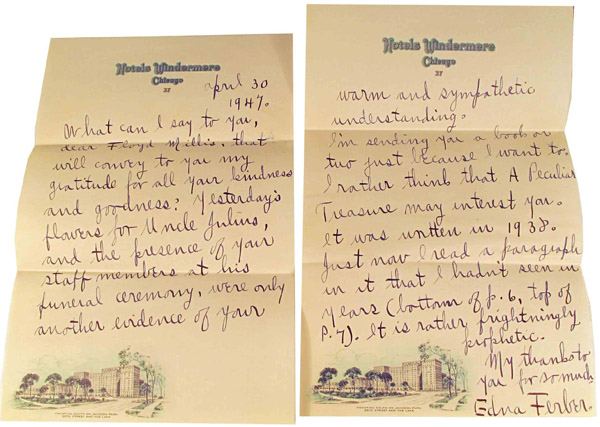 Hotels Windermere
Chicago
37
April 30
1947.
What can I say to you,
dear Floyd Millis, that
will convey to you my
gratitude for all your kindness
and goodness? Yesterday's
flowers for Uncle Julius,
and the presence of your
staff members at his
funeral ceremony, were only
another evidence of your
Hotels Windermere
Chicago
37
warm and sympathetic
understanding.
I'm sending you a book or
two just because I want to.
I rather think that A Peculiar
Treasure may interest you.
It was written in 1938.
Just now I read a paragraph
in it that I hadn't seen in
years (bottom of p. 6, top of
p. 7). It is rather frightningly
prophetic.
My thanks to
you for so much.
Edna Ferber.